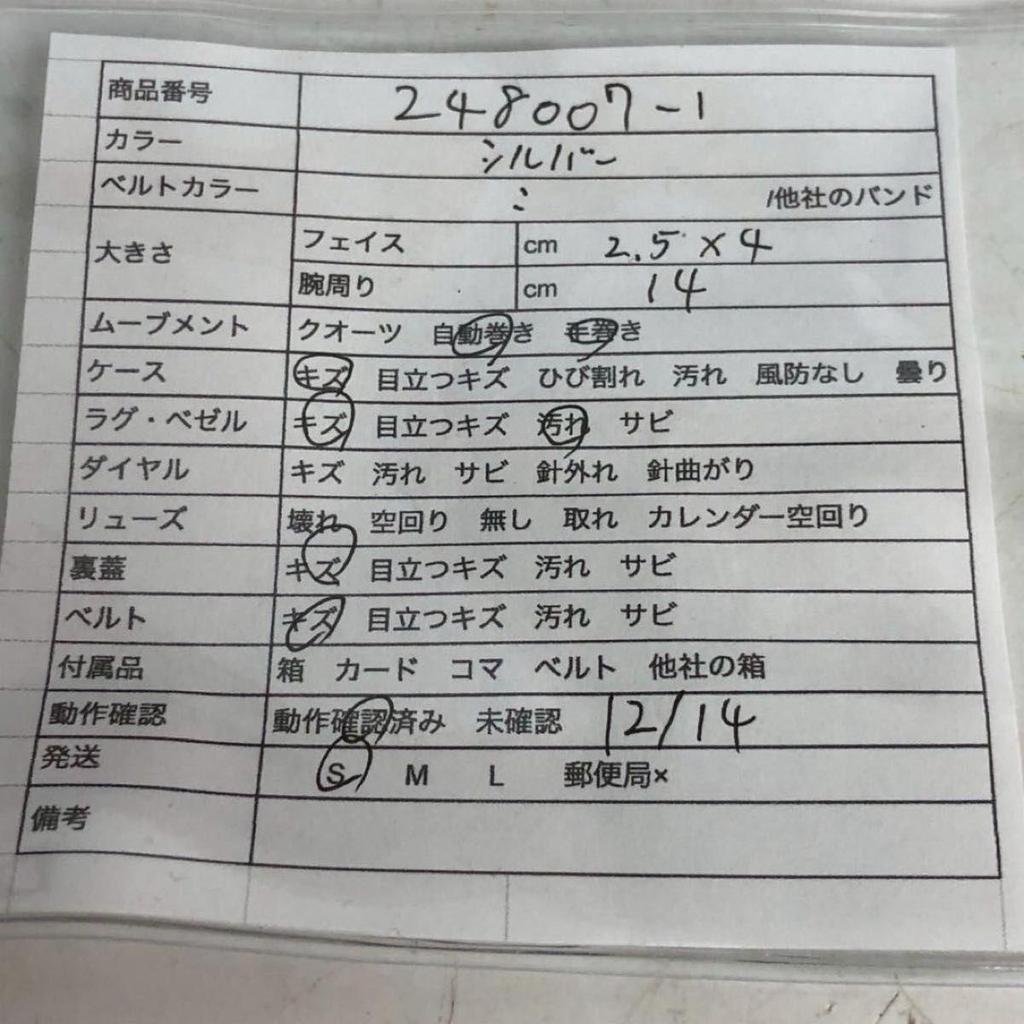 商品番号 248007-1
カラー シルバー
ベルトカラー ミ /他社のバンド
大きさ フェイス cm 2.5×4
腕周り cm 14
ムーブメント クオーツ 自動巻き 手巻き
ケース キズ 目立つキズ ひび割れ 汚れ 風防なし 曇り
ラグ・ベゼル キズ 目立つキズ 汚れ サビ
ダイヤル キズ 汚れ サビ 針外れ 針曲がり
リューズ 壊れ 空回り 無し 取れ カレンダー空回り
裏蓋 キズ 目立つキズ 汚れ サビ
ベルト キズ 目立つキズ 汚れ サビ
付属品 箱 カード コマ ベルト 他社の箱
動作確認 動作確認済み 未確認 12/14
発送 S M L 郵便局×
備考